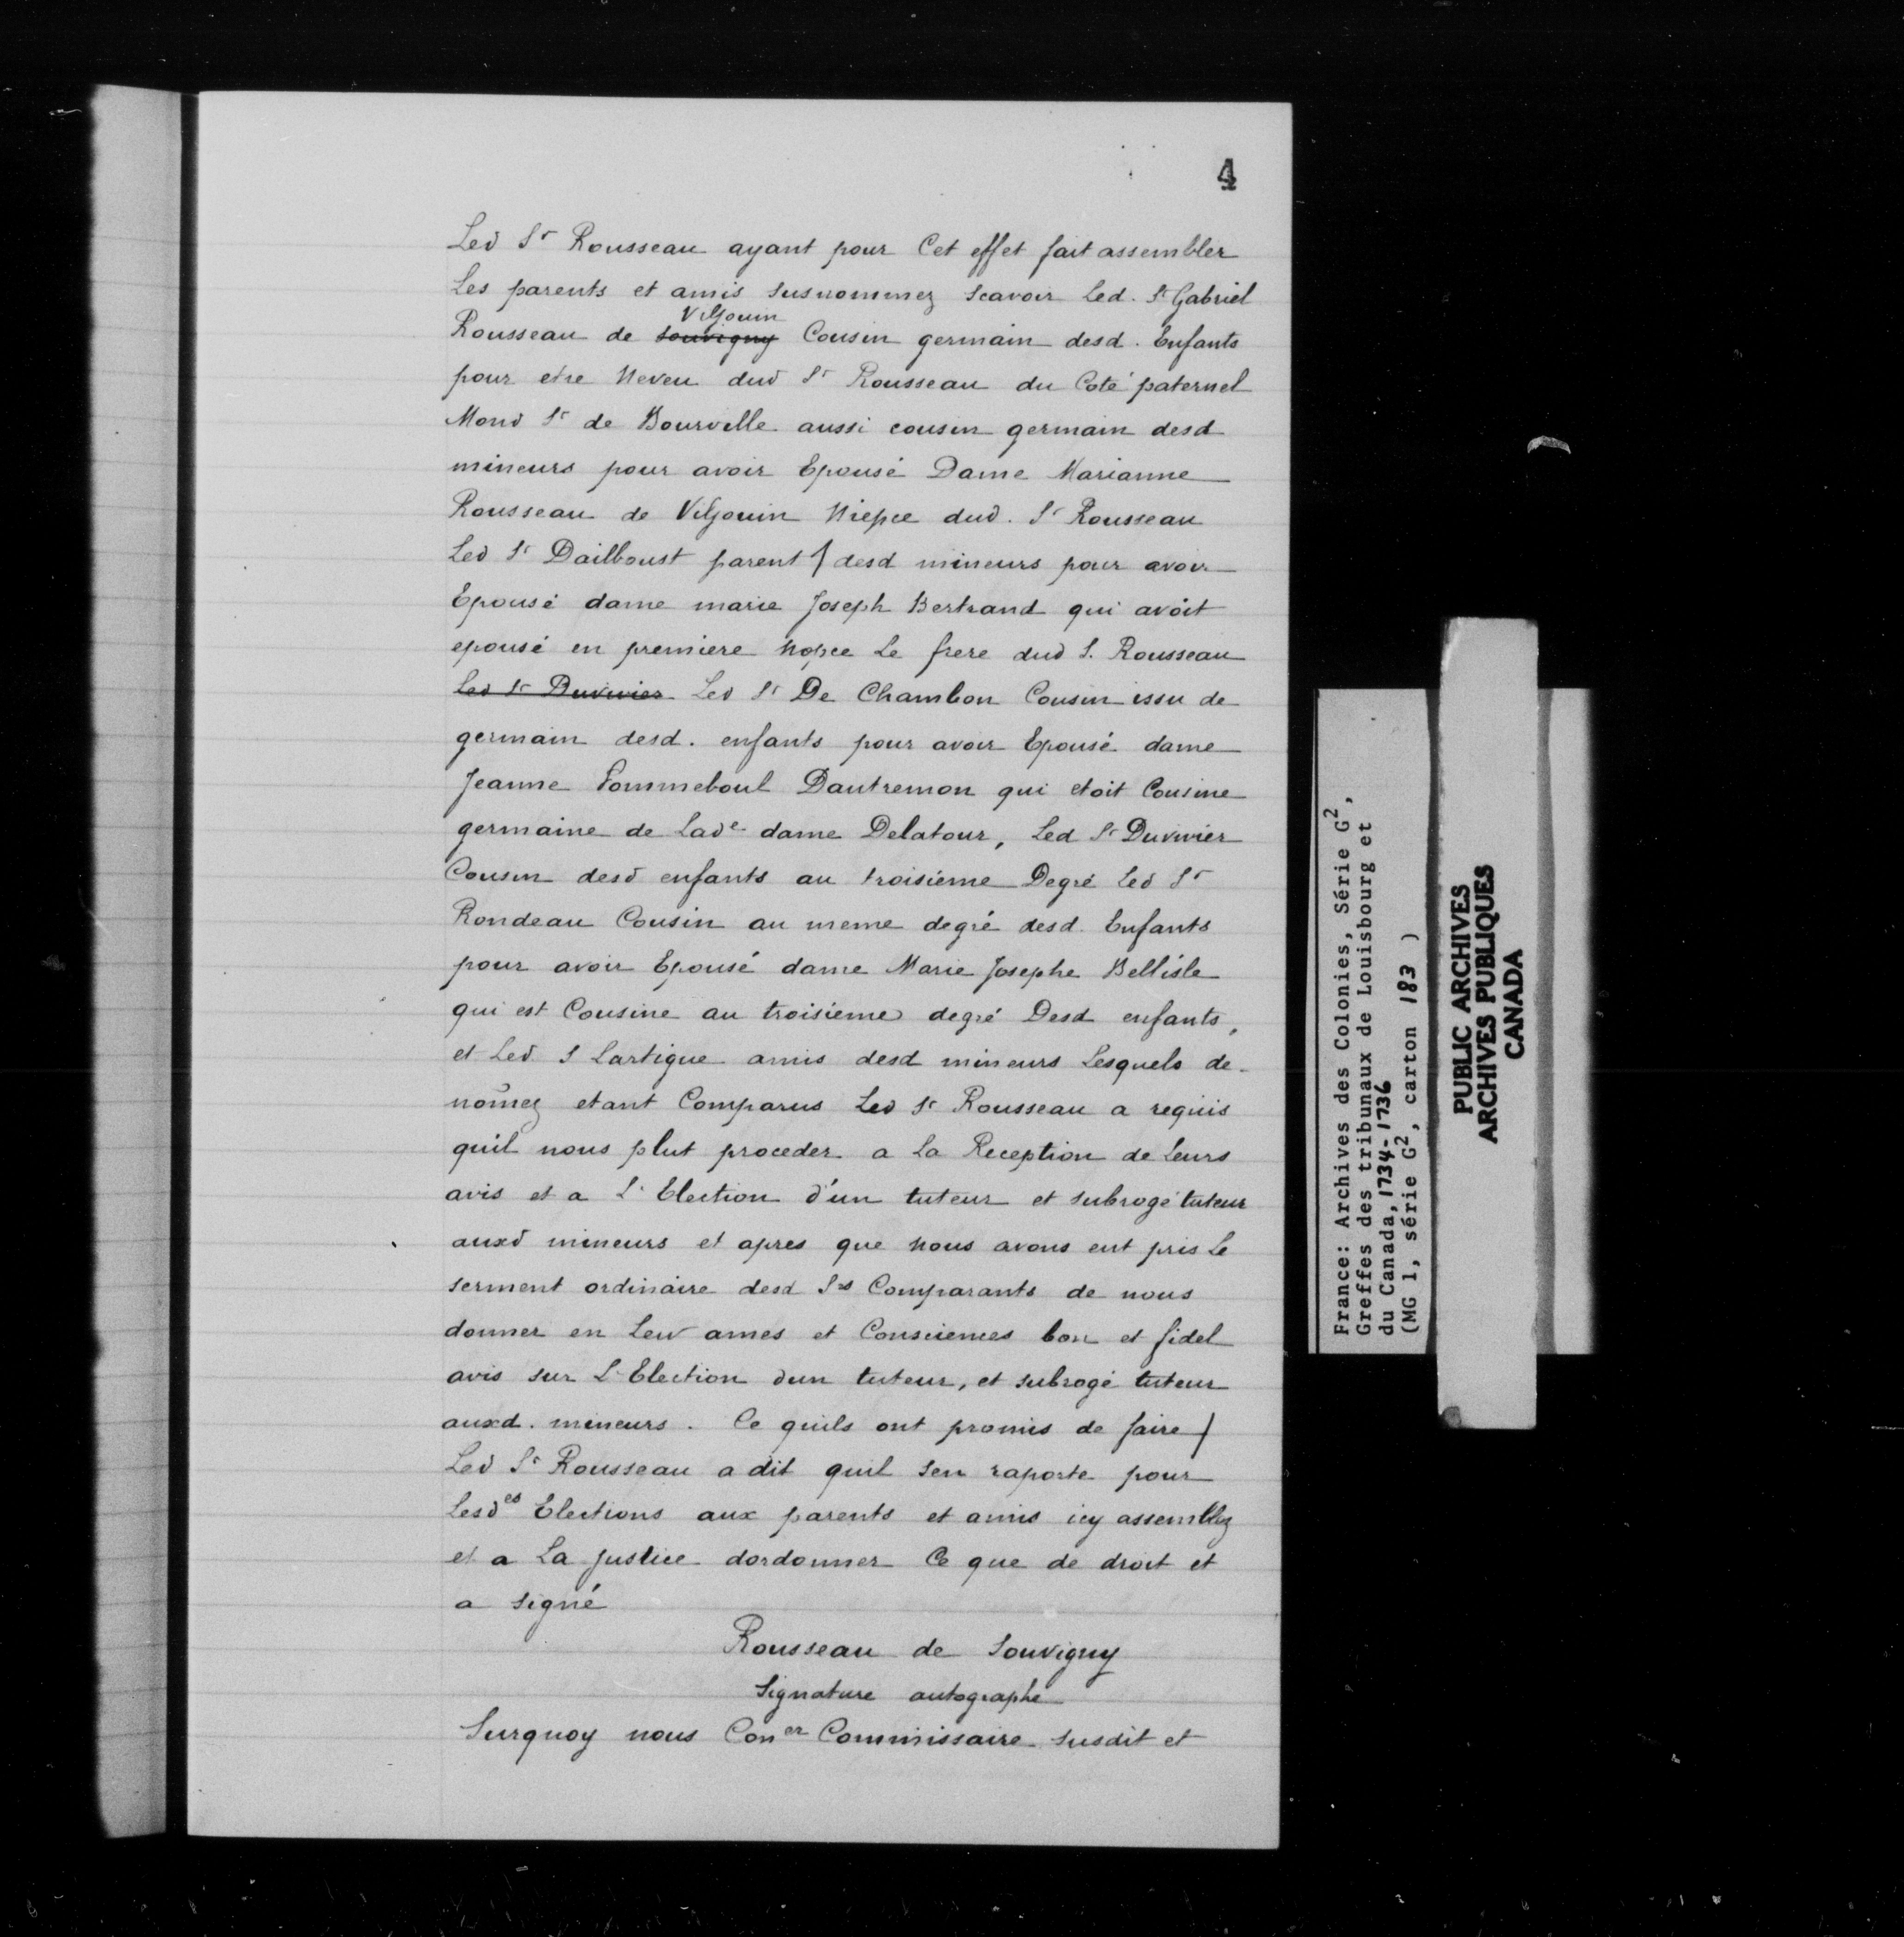 4
Led Sr Rousseau ayant pour Cet effet fait assembler
Les parents et amis susnommez scavoir Led. Sr Gabriel
Vilgouin
Rousseau de souvigny Cousin germain desd. Enfants
pour etre Neveu dud Sr Rousseau du Coté paternel
Mond Sr de Bourville aussi cousin germain desd
mineurs pour avoir Epousé Dame Marianne
Rousseau de Vilgouin Niepce dud. Sr Rousseau
Led Sr Dailboust parent / desd mineurs pour avoir
Epousé dame marie Joseph Bertrand qui avoit
epousé en premiere Nopce Le frere dud S. Rousseau
Led Sr Duvivier Led Sr De Chambon Cousin issu de
germain desd. enfants pour avoir Epousé dame
Jeanne Dautremon qui etoit Cousine
germaine de Lade dame Delatour, Led Sr Duvivier
Cousin desd enfants au troisieme Degré Led Sr
Rondeau Cousin au meme degré desd Enfants
pour avoir Epousé dame Marie Josephe Bellisle
qui est Cousine au troisieme degré Desd enfants,
et Led S Lartigue amis desd mineurs Lesquels de-
nom̃ez etant Comparus Led Sr Rousseau a requis
quil nous plut proceder a La Reception de Leurs
avis et a L'Election d'un tuteur et subrogé tuteur
auxd mineurs et apres que nous avons eut pris Le
serment ordinaire desd Srs Comparants de nous
donner en Leur ames et Consciences bon et fidel
avis sur L'Election dun tuteur, et subrogé tuteur
auxd. mineurs. Ce quils ont promis de faire /
Led Sr Rousseau a dit quil sen raporte pour
Lesdes Elections aux parents et amis icy assemblez
et a La Justice dordonner Ce que de droit et
a signé
Rousseau de Souvigny
Signature autographe
Surquoy nous Coner Commissaire susdit et
France: Archives des Colonies, Série G2,
Greffes des tribunaux de Louisbourg et
du Canada, 1734-1736
(MG 1, série G2, carton 183 )
PUBLIC ARCHIVES
ARCHIVES PUBLIQUES
CANADA